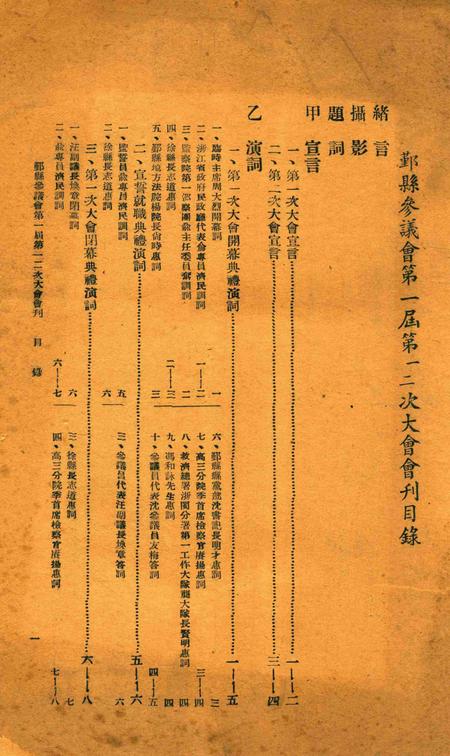 鄞縣參議會第一屆第一二次大會會刊目錄
緒言
攝影
題詞
甲 宣言
一、第一次大會宣言……一——二
二、第二次大會宣言……三——四
乙 演詞
一、第一次大會開幕典禮演詞……一——五
一、臨時主席周大烈開幕詞 一
二、浙江省政府民政廳代表俞專員濟民訓詞 一——二
三、監察院第一巡察團主任委員奮訓詞 二
四、徐縣長志道惠詞 二——三
五、鄞縣地方法院楊院長尙時惠詞 三
六、鄞縣縣黨部沈書記長明才惠詞 三
七、高三分院季首席檢察官府揚惠詞 三——四
八、救濟總署浙閩分署第一工作大隊顧大隊長賢明惠詞 四
九、馮和詠先生惠詞 四
十、參議員代表沈參議員友梅答詞 四——五
二、宣誓就職典禮演詞……五——六
一、監誓員俞專員濟民訓詞 五
二、徐縣長志道惠詞 六
三、參議員代表汪副議長煥章答詞 六
三、第一次大會閉幕典禮演詞……六——八
一、汪副議長煥章閉幕詞 六
二、俞專員濟民訓詞 六——七
三、徐縣長志道惠詞 七
四、高三分院季首席檢察官府揚惠詞 七——八
鄞縣參議會第一屆第一二次大會會刊 目錄 一